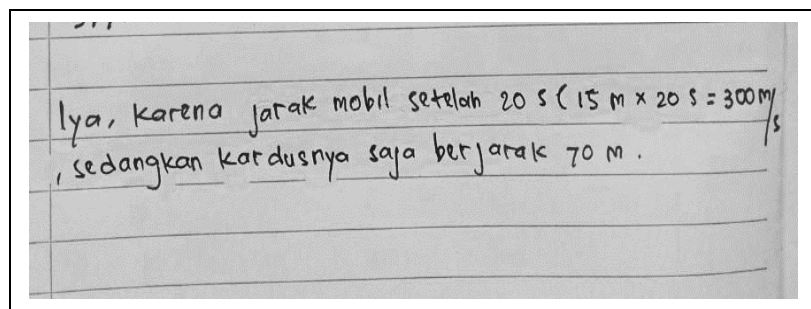 Iya, karena jarak mobil setelah 20 s ( 15 m x 20 s = 300 m/s
, sedangkan kardusnya saja berjarak 70 m .